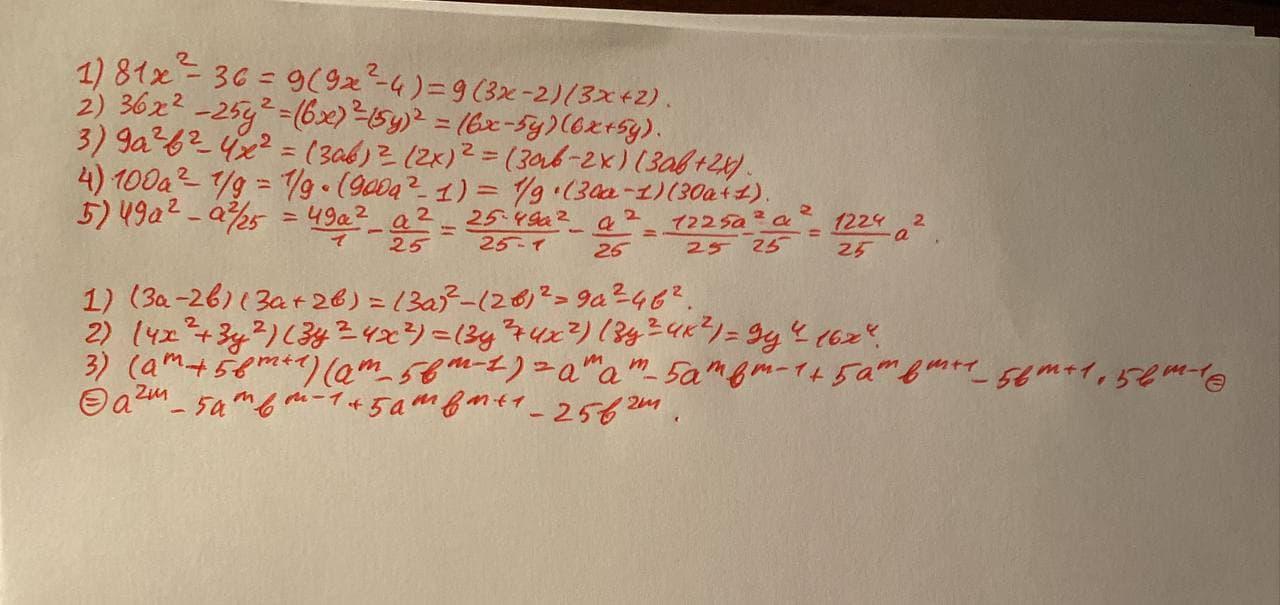 1) 81x² - 36 = 9(9x² - 4) = 9(3x - 2)(3x + 2).
2) 36x² - 25y² = (6x)² - (5y)² = (6x - 5y)(6x + 5y).
3) 9a²b² - 4x² = (3ab)² - (2x)² = (3ab - 2x)(3ab + 2x).
4) 100a² - 1/9 = 1/9 · (900a² - 1) = 1/9 · (30a - 1)(30a + 1).
5) 49a² - a²/25 = 49a²/1 - a²/25 = 25·49a²/25·1 - a²/25 = 1225a²/25 - a²/25 = 1224/25 a².
1) (3a - 2b)(3a + 2b) = (3a)² - (2b)² = 9a² - 4b².
2) (4x² + 3y²)(3y² - 4x²) = (3y² + 4x²)(3y² - 4x²) = 9y⁴ - 16x⁴.
3) (a^m + 5b^(m+1))(a^m - 5b^(m-1)) = a^m a^m - 5a^m b^(m-1) + 5a^m b^(m+1) - 5b^(m+1) · 5b^(m-1) ⊜
⊜ a^(2m) - 5a^m b^(m-1) + 5a^m b^(m+1) - 25b^(2m).